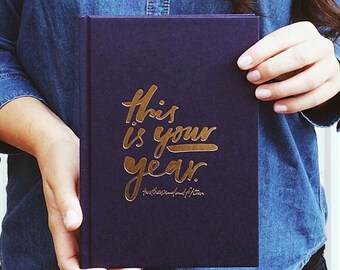 this
is your
year.
twothousandandfifteen